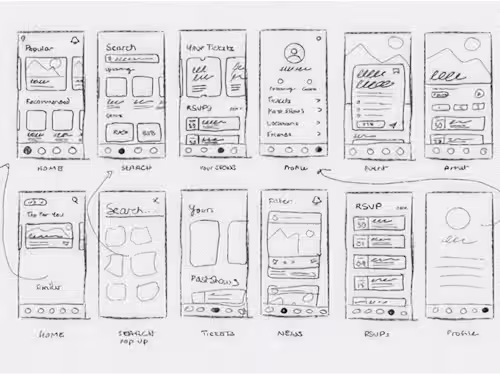 Popular
Recommended
HOME
Search
Genre
SEARCH
Your Tickets
RSVPs
YOUR SHOWS
Tickets
Past Shows
Locations
Friends
Profile
Event
Artist
Top For You
HOME
Search...
SEARCH
POP UP
Yours
Past Shows
TICKETS
Filter
NEWS
RSVP
RSVPs
Profile